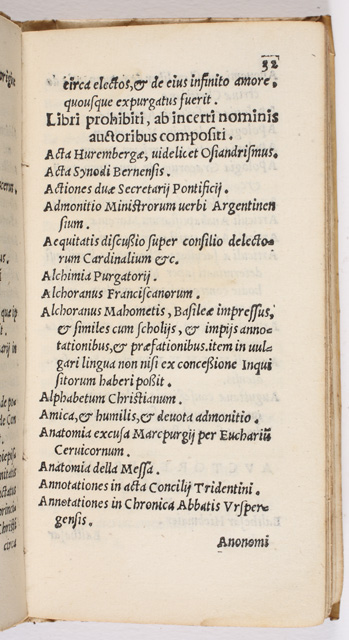 32
circa electos, & de eius infinito amore,
quousque expurgatus fuerit.
Libri prohibiti, ab incerti nominis
auctoribus compositi.
Acta Hurembergæ, uidelicet Osiandrismus.
Acta Synodi Bernensis.
Actiones duæ Secretarij Pontificij.
Admonitio Ministrorum uerbi Argentinen
sium.
Aequitatis discußio super consilio delecto-
rum Cardinalium &c.
Alchimia Purgatorij.
Alchoranus Franciscanorum.
Alchoranus Mahometis, Basileæ impressus,
& similes cum scholijs, & impijs anno-
tationibus, & præfationibus. item in uul-
gari lingua non nisi ex conceßione Inqui
sitorum haberi poßit.
Alphabetum Christianum.
Amica, & humilis, & deuota admonitio.
Anatomia excusa Marcpurgij per Eucharium
Ceruicornum.
Anatomia della Messa.
Annotationes in acta Concilij Tridentini.
Annotationes in Chronica Abbatis Vrsper-
gensis.
Anonomi